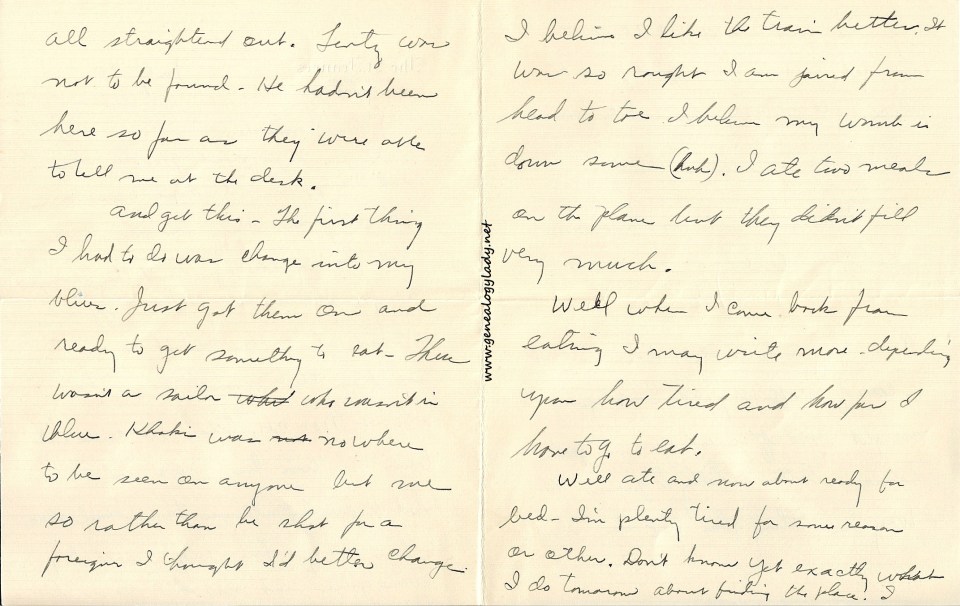 all straightend out. Lentz was
not to be found - He hadn't been
here so far as they were able
to tell me at the desk.
And get this - The first thing
I had to do was change into my
blues. Just got them on and
ready to get something to eat - There
wasn't a sailor who wasn't in
blue. Khaki was not nowhere
to be seen on anyone but me
so rather than be shot for a
foreigner I thought I'd better change.
I believe I like the train better. It
was so rought I am jarred from
head to toe. I believe my womb is
down some (huh). I ate two meals
on the plane but they didn't fill
very much.
Well when I come back from
eating I may write more - depending
upon how tired and how far I
have to go to eat.
Well ate and now about ready for
bed - I'm plenty tired for some reason
or other. Don't know yet exactly what
I do tomorrow about finding the place. I
www.genealogylady.net